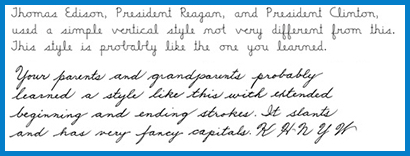 Thomas Edison, President Reagan, and President Clinton,
used a simple vertical style not very different from this.
This style is probably like the one you learned.
Your parents and grandparents probably
learned a style like this with extended
beginning and ending strokes. It slants
and has very fancy capitals. K H N Y W